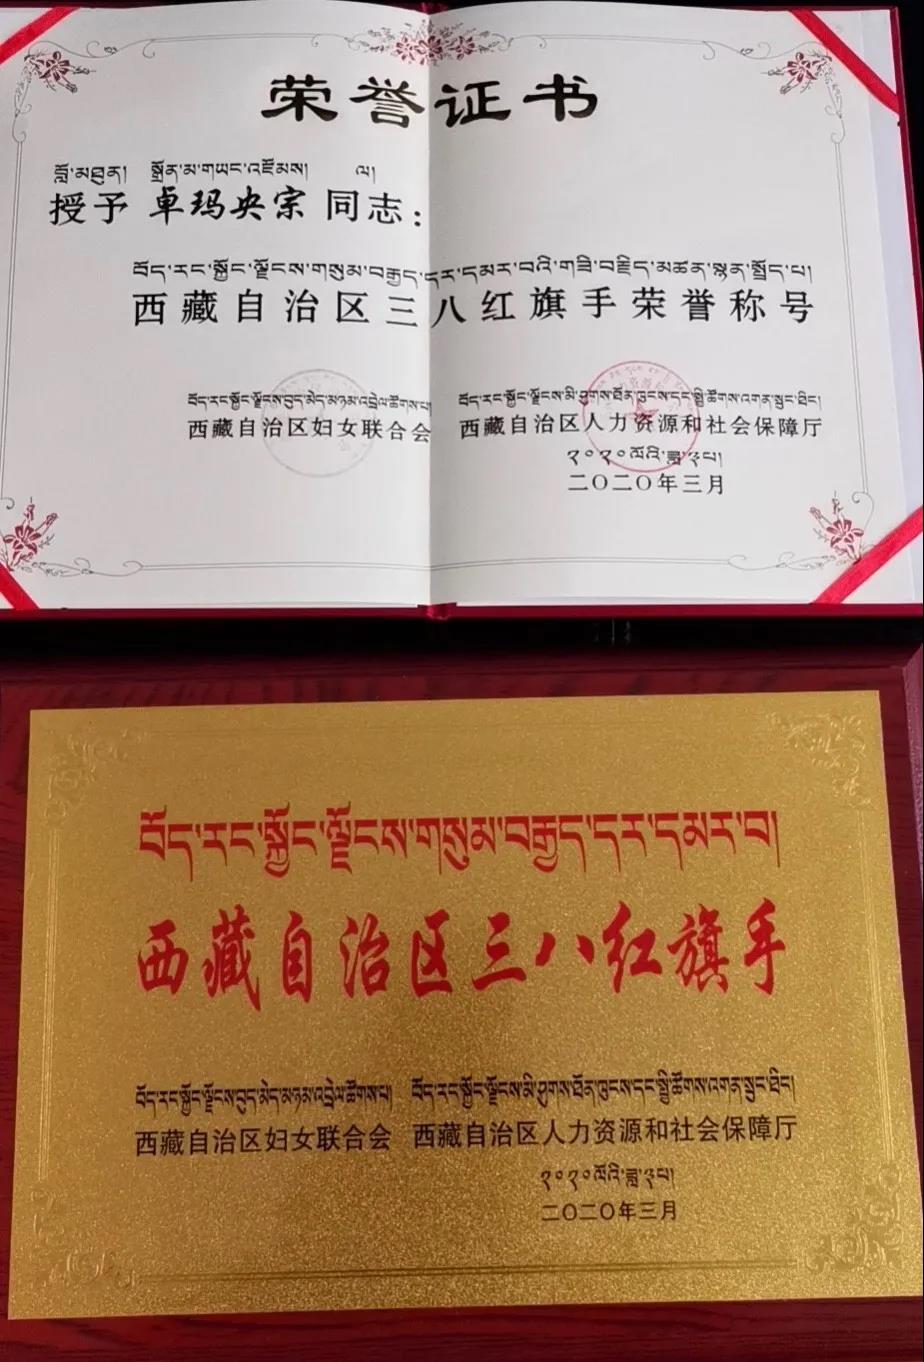 荣誉证书
བློ་མཐུན། སྒྲོན་མ་གཡང་འཛོམས། ལ།
授予 卓玛央宗 同志：
བོད་རང་སྐྱོང་ལྗོངས་གསུམ་བརྒྱད་དར་དམར་བའི་གཟི་བརྗིད་མཚན་སྙན་སྤྲོད་པ།
西藏自治区三八红旗手荣誉称号
བོད་རང་སྐྱོང་ལྗོངས་བུད་མེད་མཉམ་འབྲེལ་ཚོགས་པ། བོད་རང་སྐྱོང་ལྗོངས་མི་ཤུགས་ཐོན་ཁུངས་དང་སྤྱི་ཚོགས་འགན་སྲུང་ཐིང་།
西藏自治区妇女联合会 西藏自治区人力资源和社会保障厅
༢༠༢༠ལོའི་ཟླ་༣པ།
二〇二〇年三月
བོད་རང་སྐྱོང་ལྗོངས་གསུམ་བརྒྱད་དར་དམར་བ།
西藏自治区三八红旗手
བོད་རང་སྐྱོང་ལྗོངས་བུད་མེད་མཉམ་འབྲེལ་ཚོགས་པ། བོད་རང་སྐྱོང་ལྗོངས་མི་ཤུགས་ཐོན་ཁུངས་དང་སྤྱི་ཚོགས་འགན་སྲུང་ཐིང་།
西藏自治区妇女联合会 西藏自治区人力资源和社会保障厅
༢༠༢༠ལོའི་ཟླ་༣པ།
二〇二〇年三月